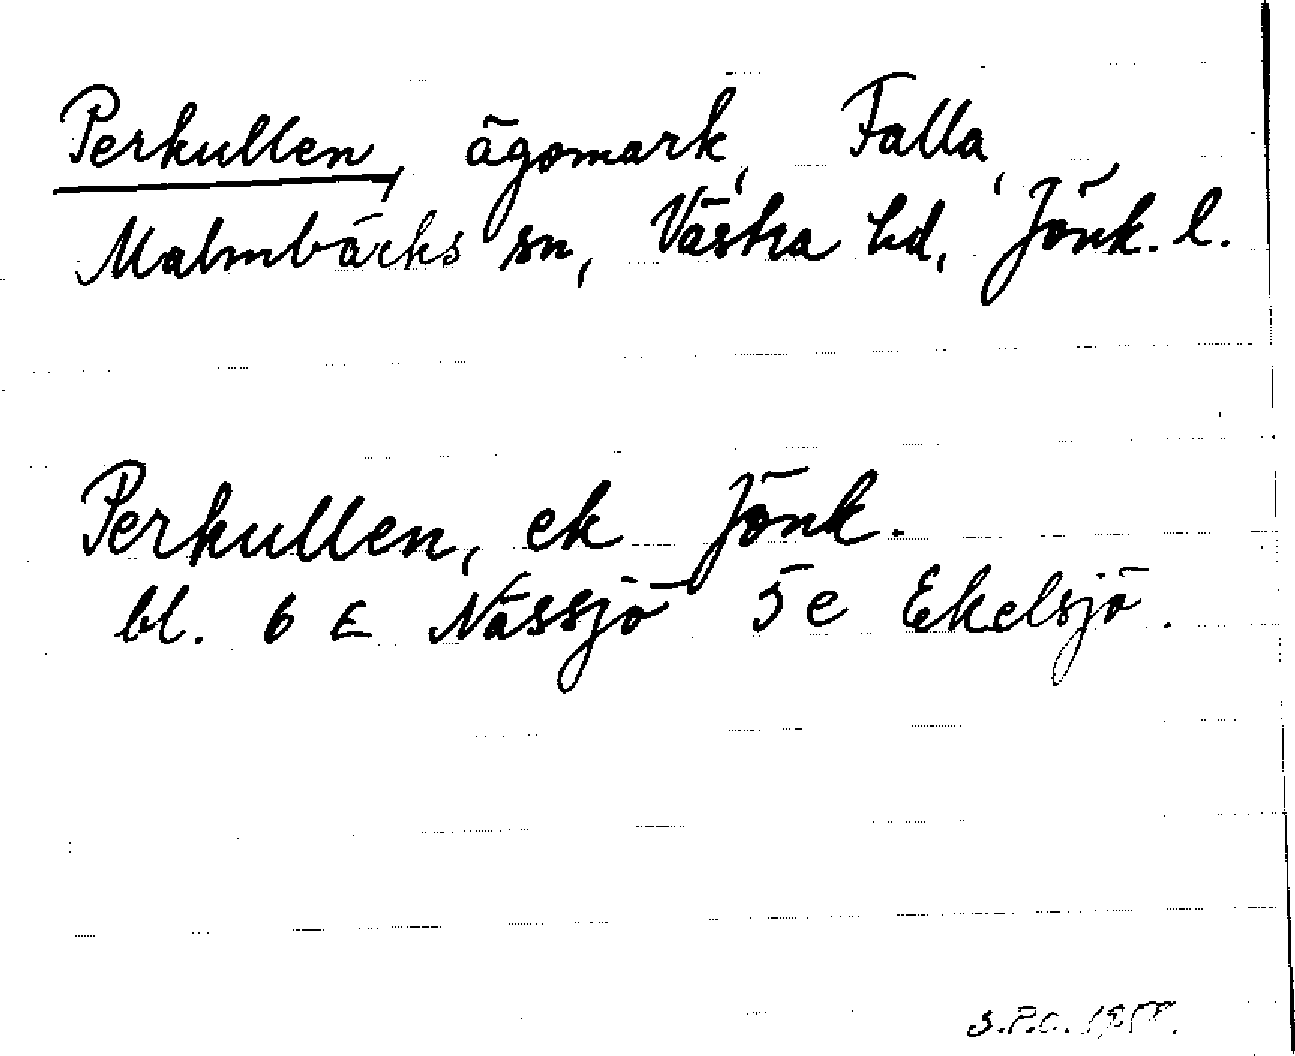 Perkullen, ägomark, Falla,
Malmbäcks sn, Västra hd, Jönk. l.
Perkullen, ek Jönk.
bl. 6 E Nässjö 5 e Ekelsjö.
S.P.O.